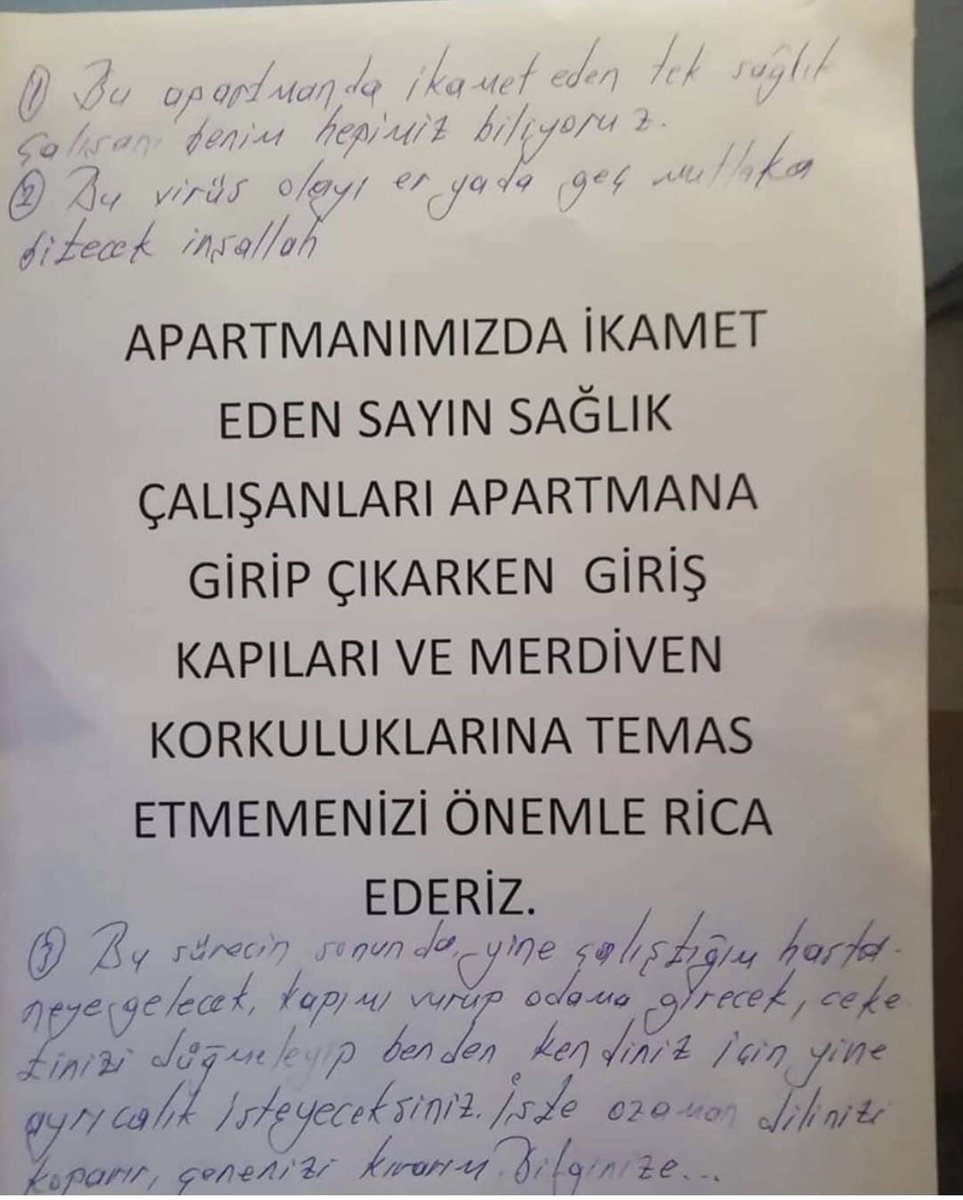 ① Bu apartmanda ikamet eden tek sağlık
çalışanı benim hepimiz biliyoruz.
② Bu virüs olayı er yada geç mutlaka
bitecek inşallah
APARTMANIMIZDA İKAMET
EDEN SAYIN SAĞLIK
ÇALIŞANLARI APARTMANA
GİRİP ÇIKARKEN GİRİŞ
KAPILARI VE MERDİVEN
KORKULUKLARINA TEMAS
ETMEMENİZİ ÖNEMLE RİCA
EDERİZ.
③ Bu sürecin sonunda, yine çalıştığım hasta-
neye gelecek, kapımı vurup odama girecek, ceke-
tinizi düğmeleyip benden kendiniz için yine
ayrıcalık isteyeceksiniz. İşte ozaman dilinizi
koparır, çenenizi kırarım. Bilginize...